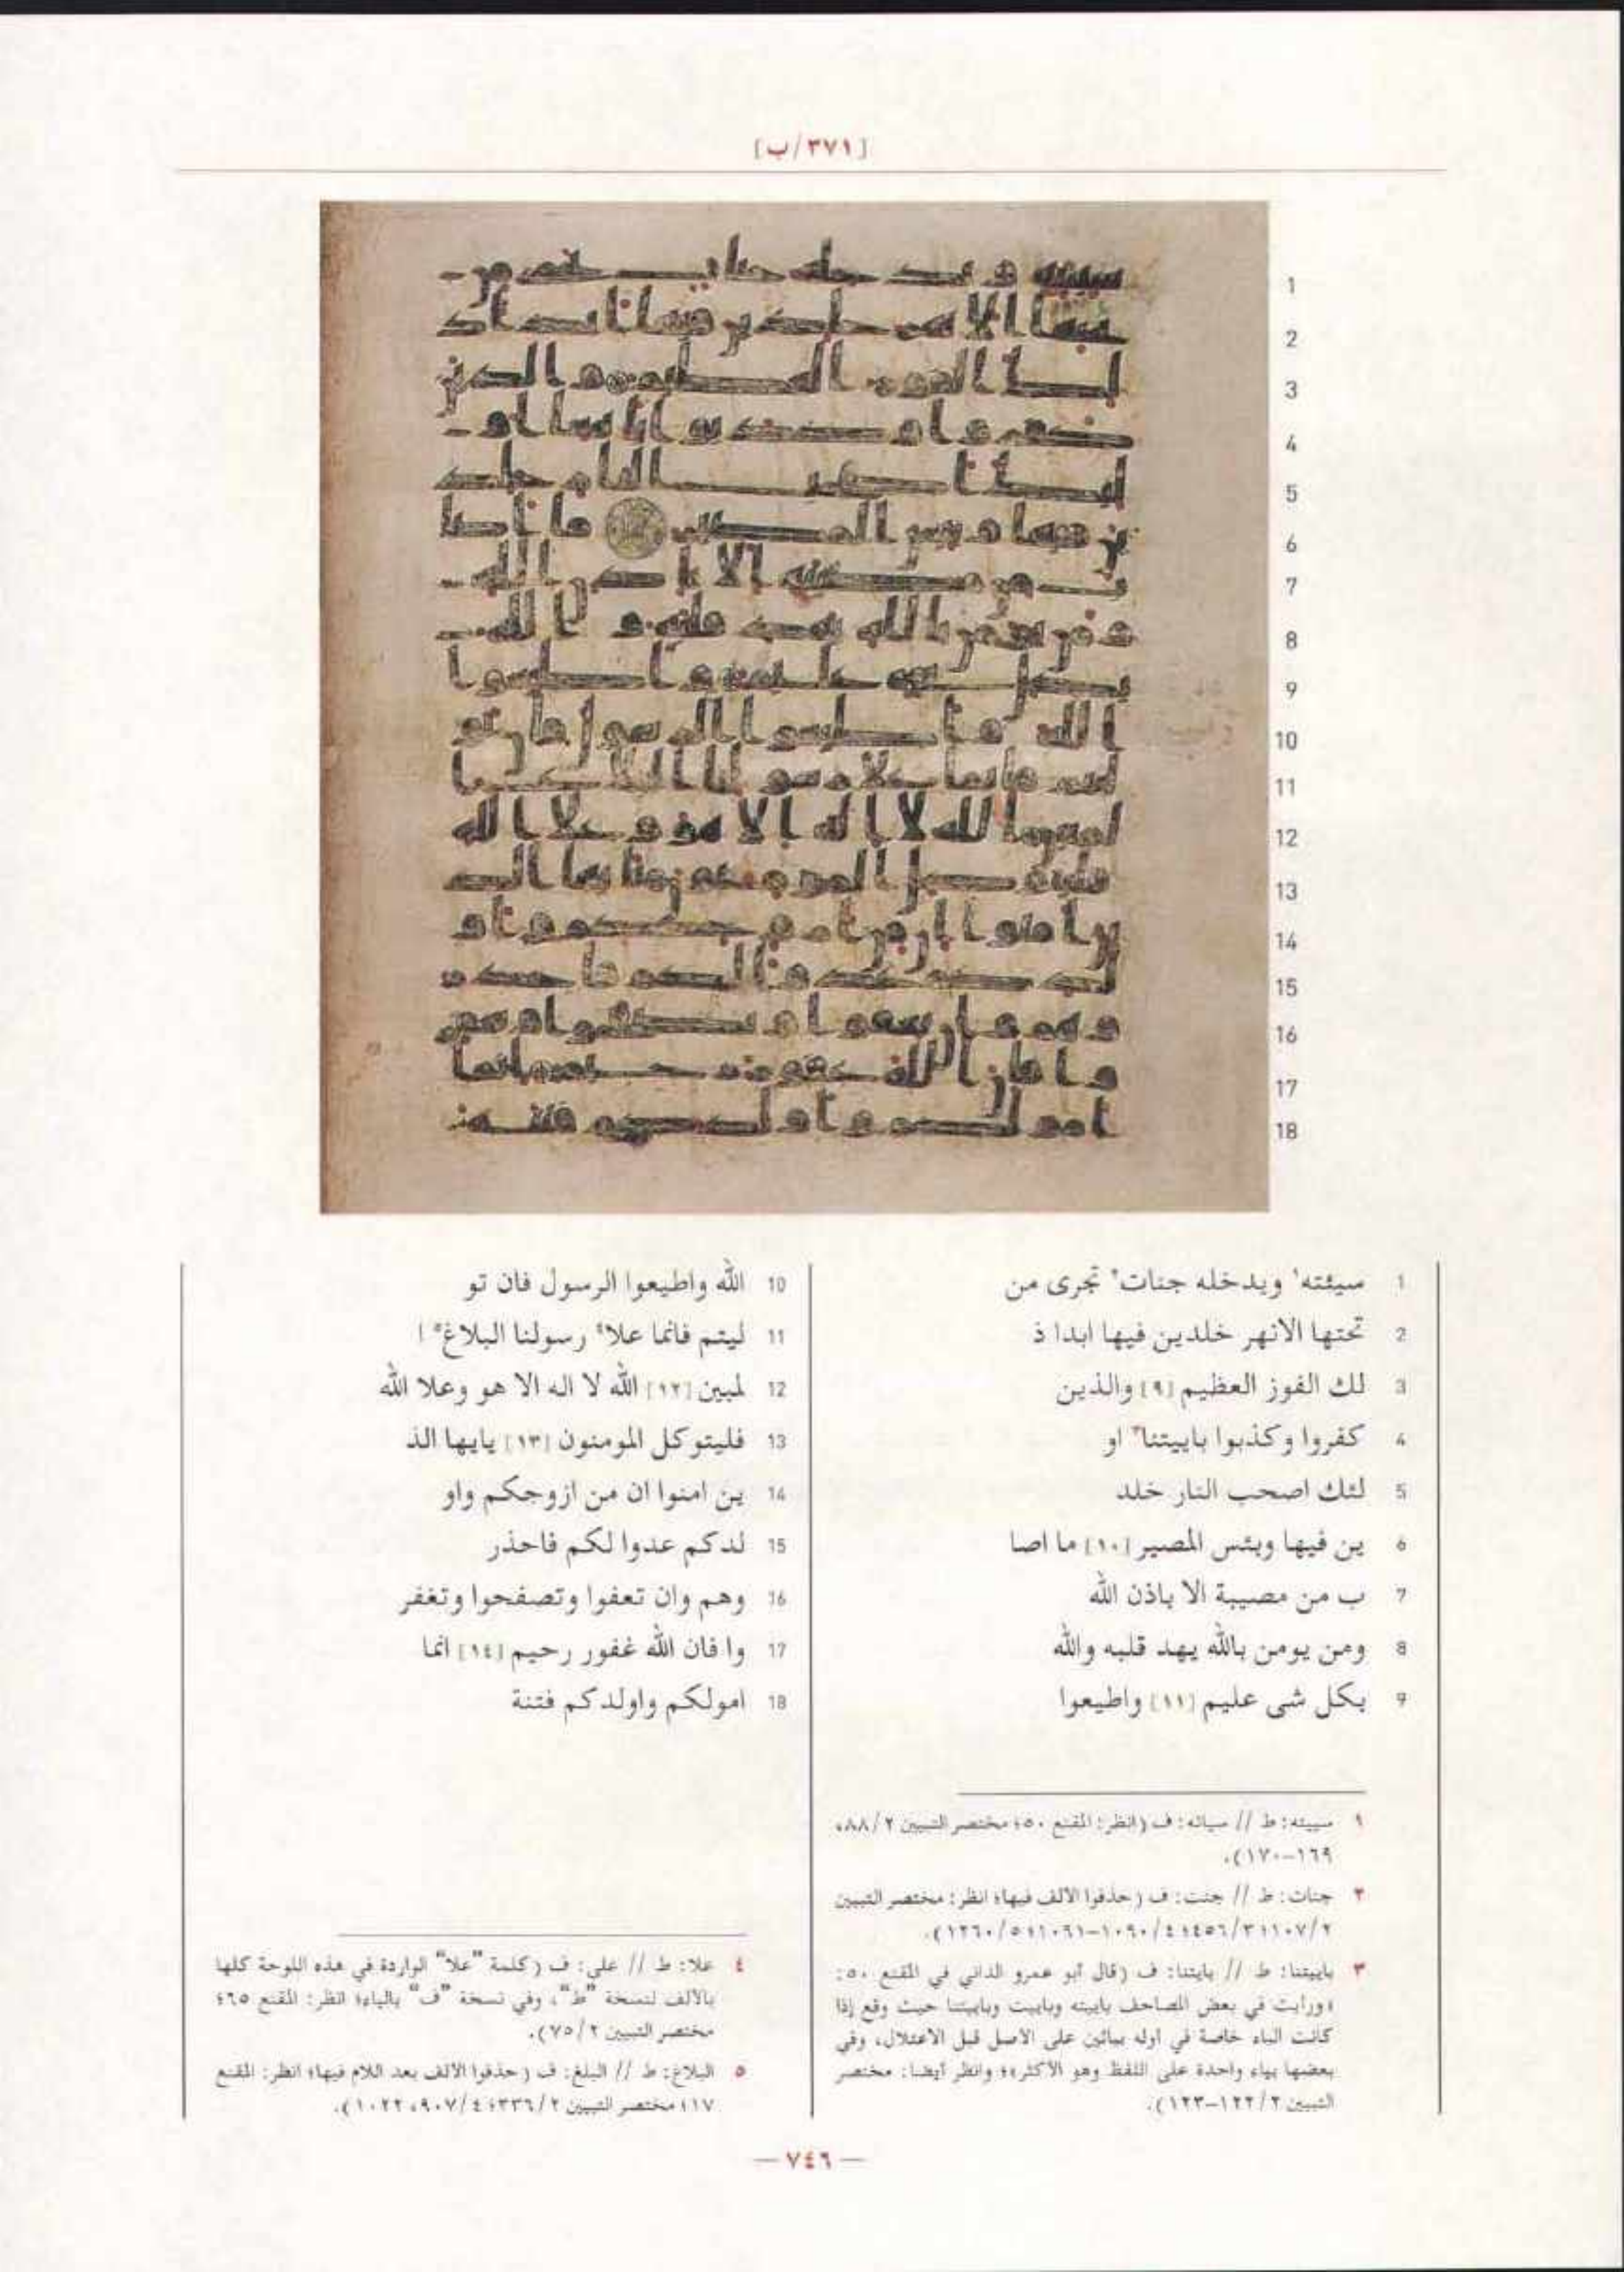 [٣٧١/ب]
1 سيئته١ ويدخله جنات٢ تجرى من
2 تحتها الانهر خلدين فيها ابدا ذ
3 لك الفوز العظيم [٩] والذين
4 كفروا وكذبوا باييتنا٣ او
5 لئك اصحب النار خلد
6 ين فيها وبئس المصير [١٠] ما اصا
7 ب من مصيبة الا باذن الله
8 ومن يومن بالله يهد قلبه والله
9 بكل شى عليم [١١] واطيعوا
10 الله واطيعوا الرسول فان تو
11 ليتم فانما علا٤ رسولنا البلاغ٥ ا
12 لمبين [١٢] الله لا اله الا هو وعلا الله
13 فليتوكل المومنون [١٣] يايها الذ
14 ين امنوا ان من ازوجكم واو
15 لدكم عدوا لكم فاحذر
16 وهم وان تعفوا وتصفحوا وتغفر
17 وا فان الله غفور رحيم [١٤] انما
18 امولكم واولدكم فتنة
١ سيئته: ط // سياته: ف (انظر: المقنع ٥٠؛ مختصر التبيين ٢/٨٨،
١٦٩-١٧٠).
٢ جنات: ط // جنت: ف (حذفوا الألف فيها؛ انظر: مختصر التبيين
٢/١٠٧؛ ٣/٤٥٦؛ ٤/١٠٩٠-١٠٩١؛ ٥/١٢٦٠).
٣ باييتنا: ط // بايتنا: ف (قال أبو عمرو الداني في المقنع ٥٠:
«ورأيت في بعض المصاحف باييته وباييت وباييتنا حيث وقع إذا
كانت الباء خاصة في أوله بيائين على الأصل قبل الاعتلال، وفي
بعضها بياء واحدة على اللفظ وهو الأكثر»؛ وانظر أيضا: مختصر
التبيين ٢/١٢٢-١٢٣).
٤ علا: ط // على: ف (كلمة "علا" الواردة في هذه اللوحة كلها
بالألف لنسخة "ط"، وفي نسخة "ف" بالياء؛ انظر: المقنع ٦٥؛
مختصر التبيين ٢/٧٥).
٥ البلاغ: ط // البلغ: ف (حذفوا الألف بعد اللام فيها؛ انظر: المقنع
١٧؛ مختصر التبيين ٢/٣٣٦؛ ٤/٩٠٧، ١٠٢٢).
— ٧٤٦ —